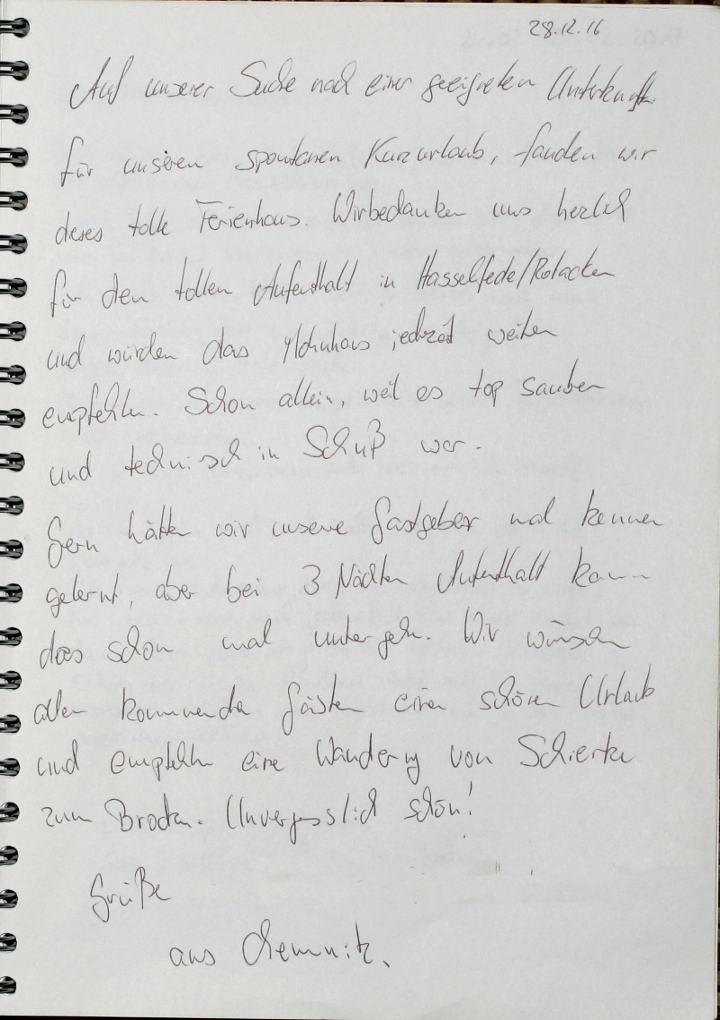 28.12.16
Auf unserer Suche nach einer geeigneten Unterkunft
für unseren spontanen Kurzurlaub, fanden wir
dieses tolle Ferienhaus. Wir bedanken uns herzlich
für den tollen Aufenthalt in Hasselfelde/Rotacker
und würden das Haus jederzeit weiter
empfehlen. Schon allein, weil es top sauber
und technisch in Schuß war.
Gern hätten wir unsere Gastgeber mal kennen
gelernt, aber bei 3 Nächten Aufenthalt kann
das schon mal untergehn. Wir wünschen
allen kommenden Gästen einen schönen Urlaub
und empfehlen eine Wanderung von Schierke
zum Brocken. Unvergesslich schön!
Grüße
aus Chemnitz.